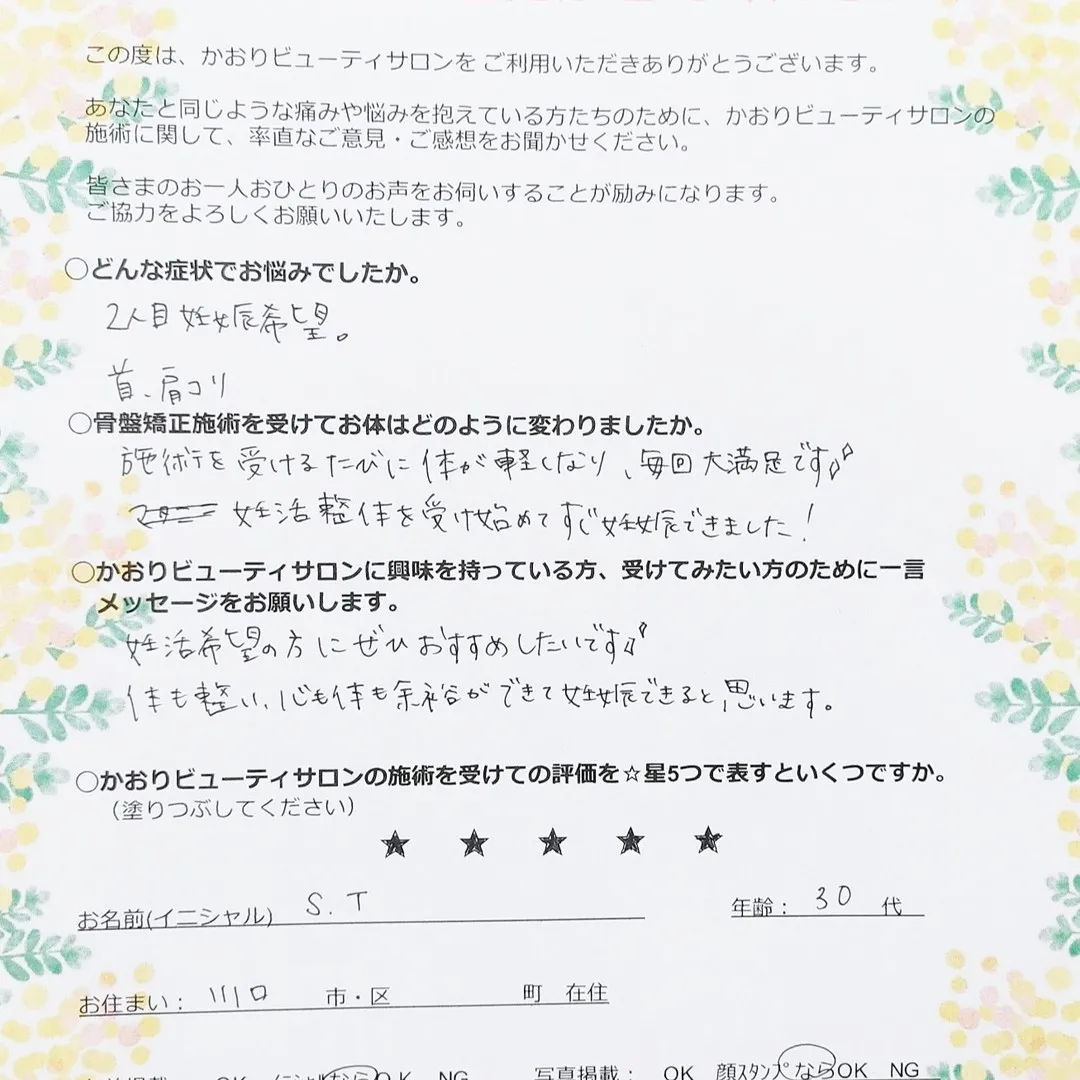 この度は、かおりビューティサロンを ご利用いただきありがとうございます。
あなたと同じような痛みや悩みを抱えている方たちのために、かおりビューティサロンの
施術に関して、率直なご意見・ご感想をお聞かせください。
皆さまのお一人おひとりのお声をお伺いすることが励みになります。
ご協力をよろしくお願いいたします。
○どんな症状でお悩みでしたか。
2人目妊娠希望。
首、肩コリ
○骨盤矯正施術を受けてお体はどのように変わりましたか。
施術を受けるたびに体が軽くなり、毎回大満足です♪
妊活整体を受け始めてすぐ妊娠できました!
○かおりビューティサロンに興味を持っている方、受けてみたい方のために一言
メッセージをお願いします。
妊活希望の方にぜひおすすめしたいです♪
体も整い、心も体も余裕ができて妊娠できると思います。
○かおりビューティサロンの施術を受けての評価を☆星5つで表すといくつですか。
(塗りつぶしてください)
★ ★ ★ ★ ★
お名前(イニシャル) S.T 年齢: 30 代
お住まい: 川口 市・区 町 在住
OK ならOK NG 写真掲載: OK 顔スタンプならOK NG